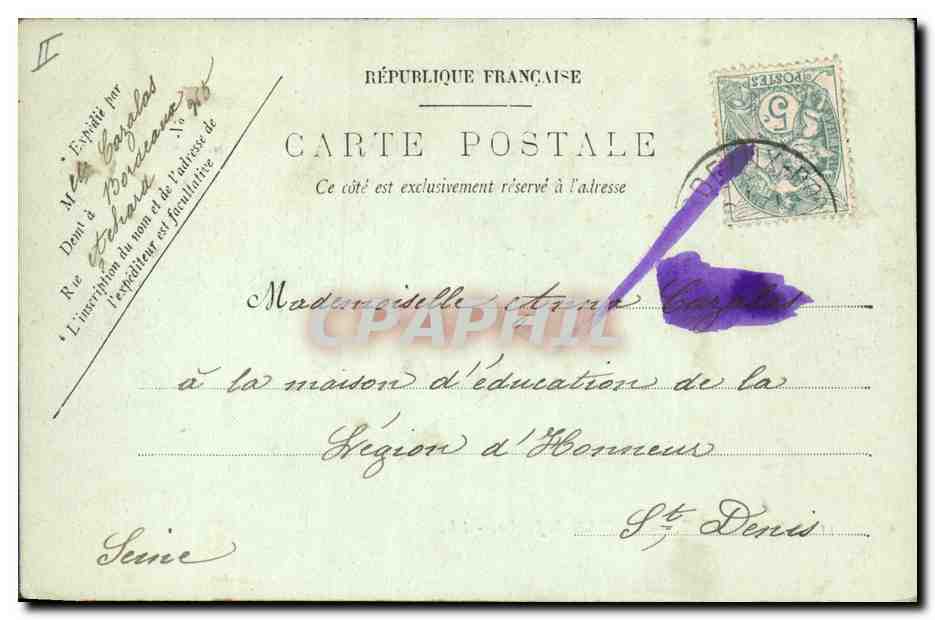 II
* Expédié par
Mlle Cazalas
Demt à Bordeaux
Rue Achard No 215
* L'inscription du nom et de l'adresse de
l'expéditeur est facultative
RÉPUBLIQUE FRANÇAISE
CARTE POSTALE
Ce côté est exclusivement réservé à l'adresse
POSTES
5
Mademoiselle Anna Cazalas
à la maison d'éducation de la
Légion d'Honneur
St Denis
Seine
CPAPHIL